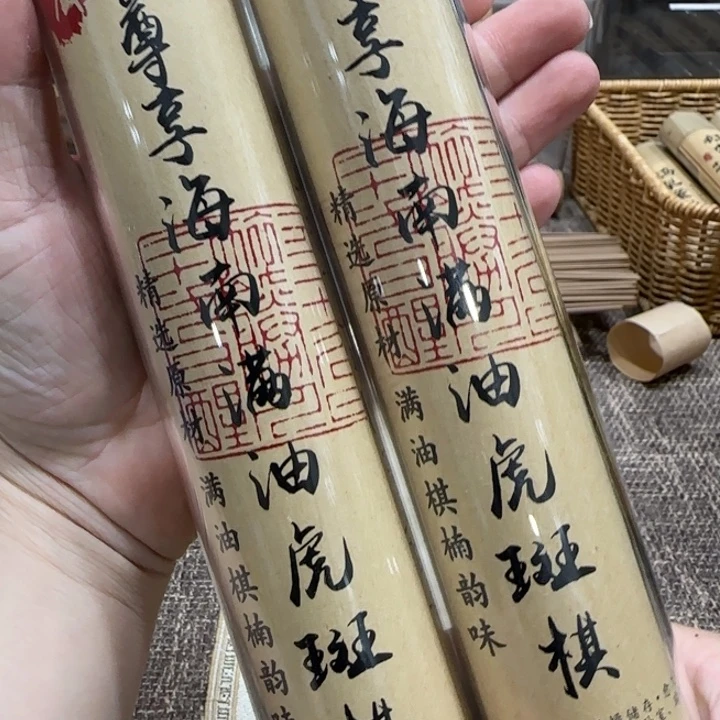 尊享海南满油虎斑
精选原材
满油棋楠韵味
享海南满油虎斑棋
精选原材
满油棋楠韵味